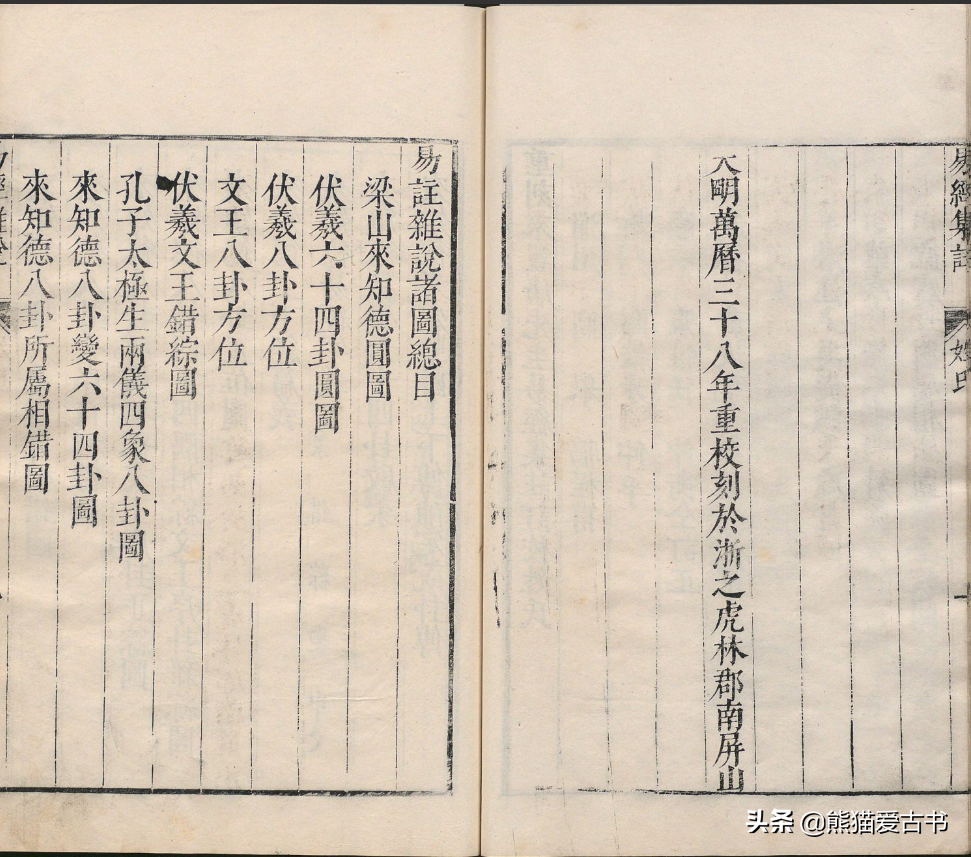 易經集註
姓氏
大明萬曆三十八年重校刻於浙之虎林郡南屏山
易註雜說諸圖總目
梁山來知德圓圖
伏羲六十四卦圓圖
伏羲八卦方位
文王八卦方位
伏羲文王錯綜圖
孔子太極生兩儀四象八卦圖
來知德八卦變六十四卦圖
來知德八卦所屬相錯圖
头条 @熊猫爱古书